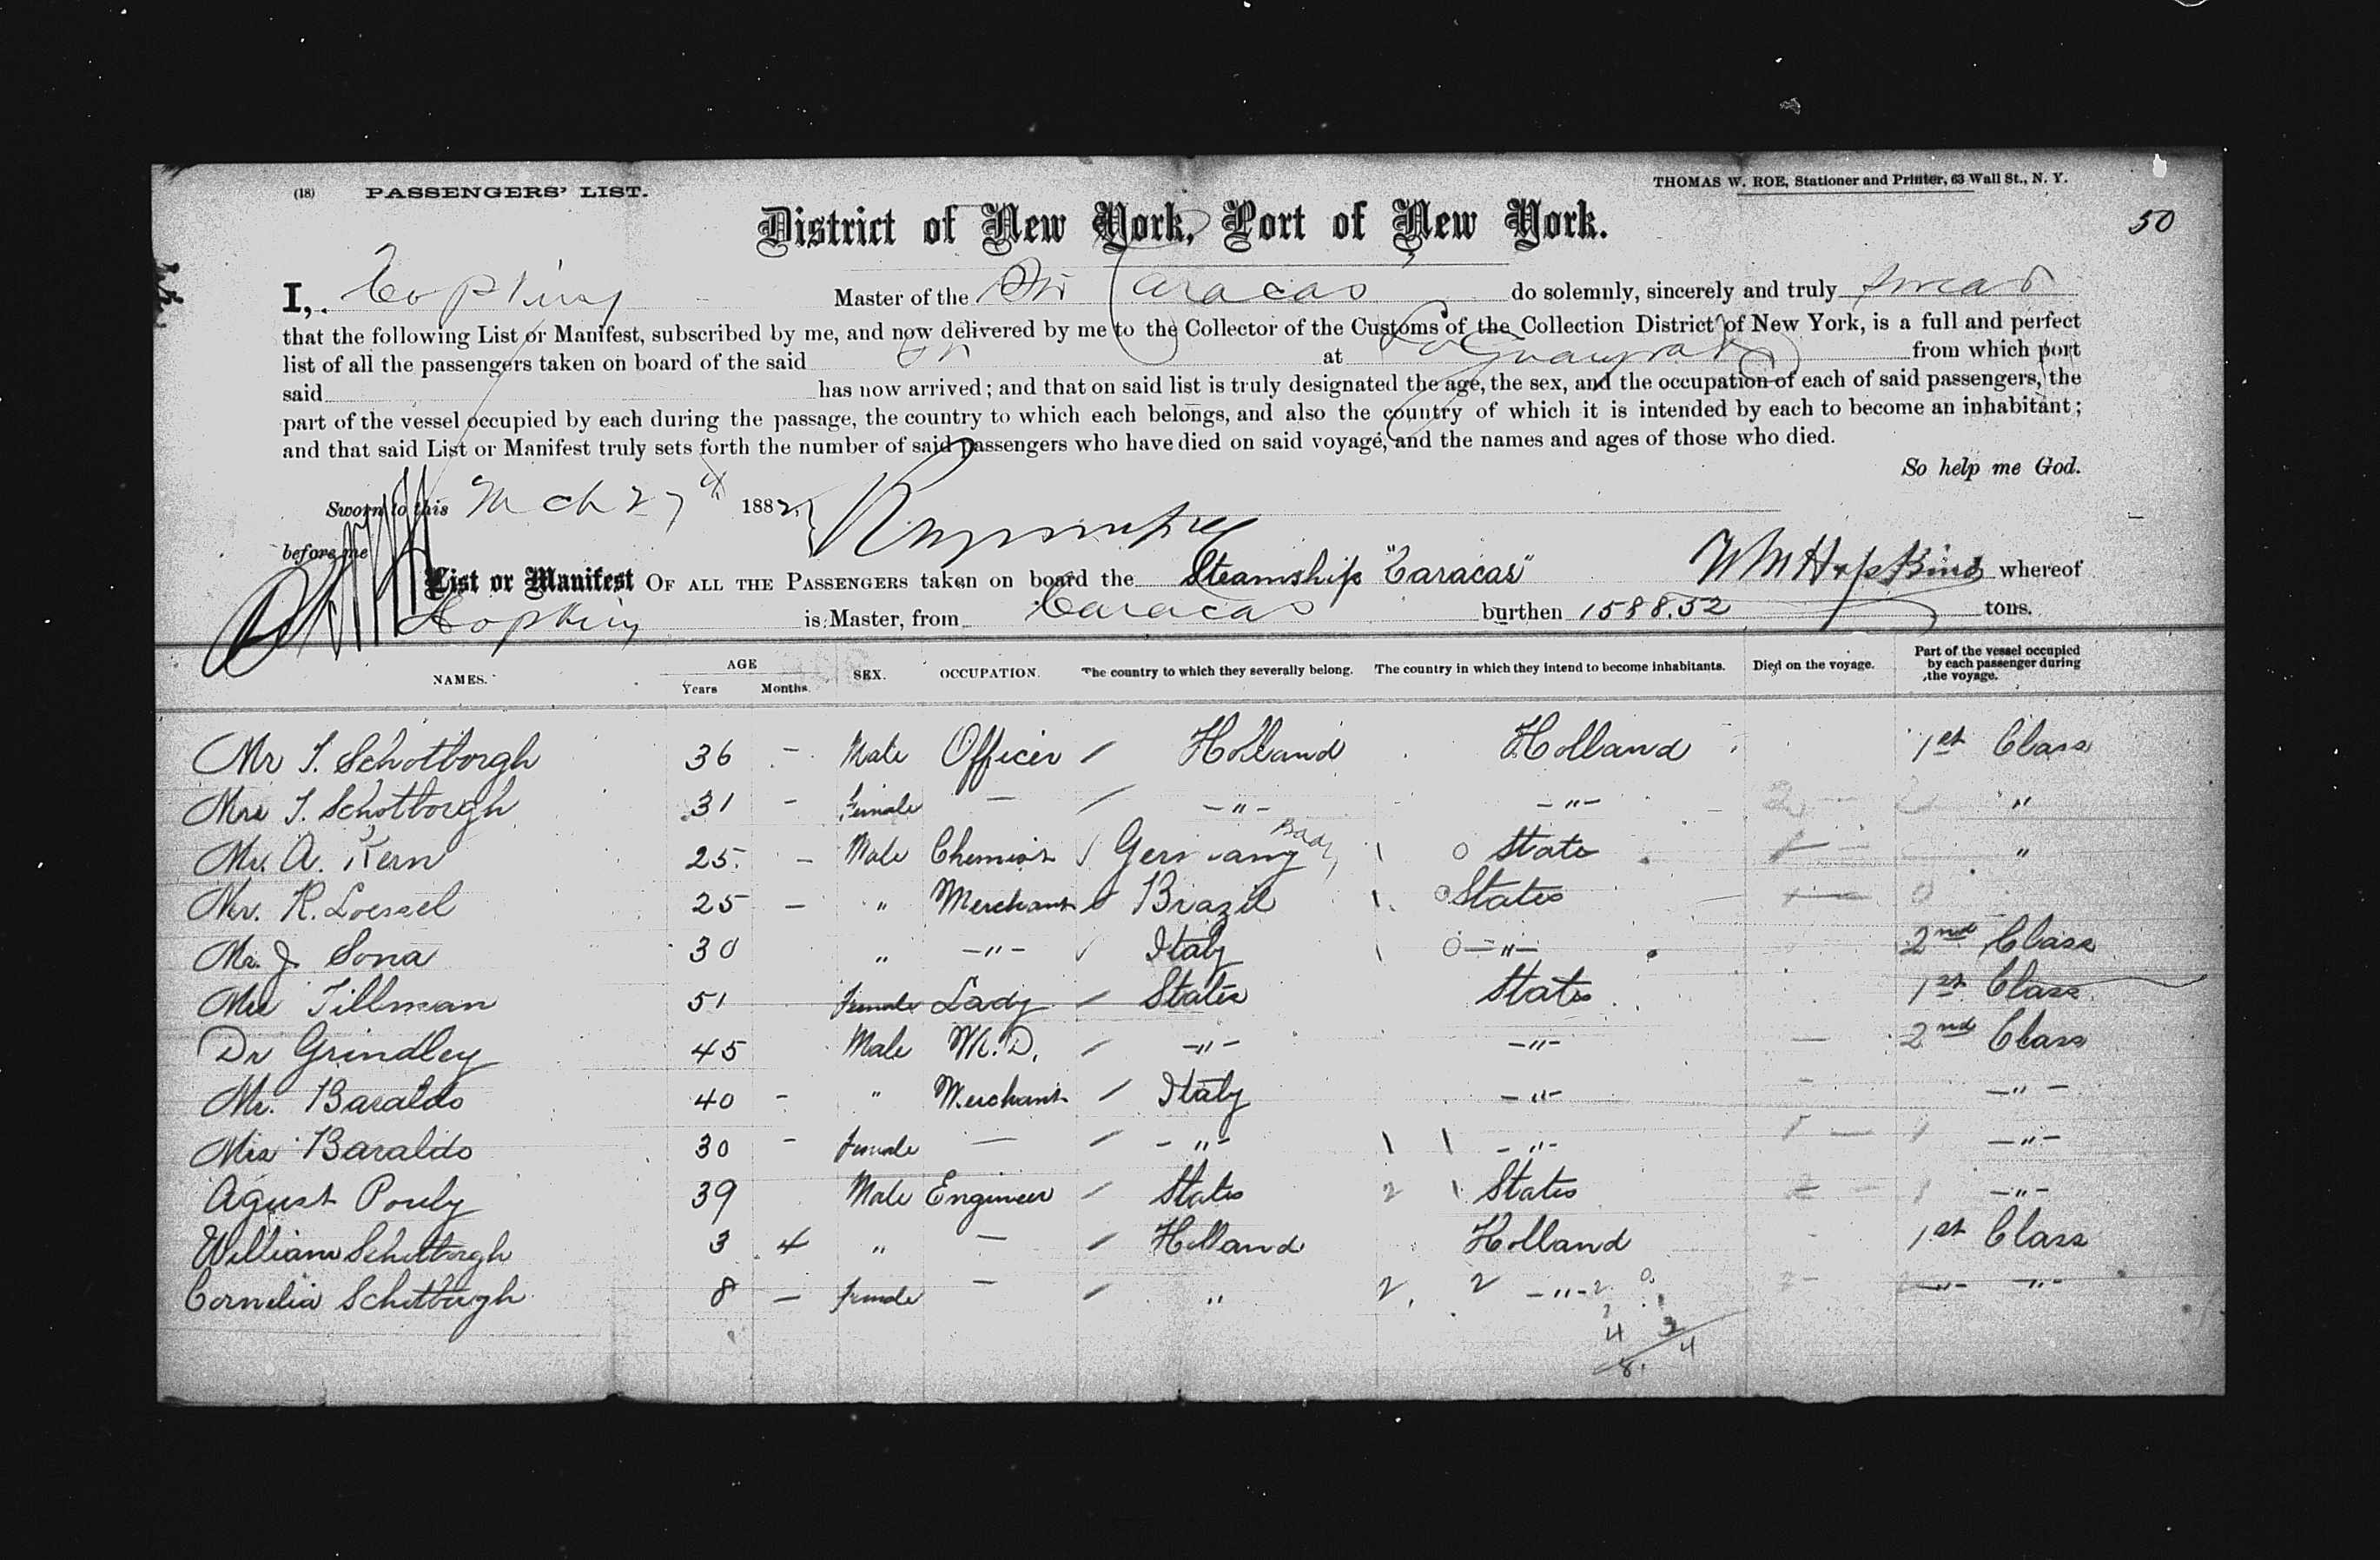 (18) PASSENGERS' LIST. THOMAS W. ROE, Stationer and Printer, 63 Wall St., N. Y.
District of New York, Port of New York. 50
I, Hopkins Master of the Str Caracas do solemnly, sincerely and truly swear
that the following List or Manifest, subscribed by me, and now delivered by me to the Collector of the Customs of the Collection District of New York, is a full and perfect
list of all the passengers taken on board of the said Str at Laguayra from which port
said has now arrived; and that on said list is truly designated the age, the sex, and the occupation of each of said passengers, the
part of the vessel occupied by each during the passage, the country to which each belongs, and also the country of which it is intended by each to become an inhabitant;
and that said List or Manifest truly sets forth the number of said passengers who have died on said voyage, and the names and ages of those who died.
So help me God.
Sworn to this Mch 27th 1882.
before me
List or Manifest OF ALL THE PASSENGERS taken on board the Steamship "Caracas" Wm Hopkins whereof
Hopkins is Master, from Caracas burthen 1588.52 tons.
NAMES. AGE Years Months. SEX. OCCUPATION. The country to which they severally belong. The country in which they intend to become inhabitants. Died on the voyage. Part of the vessel occupied by each passenger during the voyage.
Mr J. Schotborgh 36 - Male Officer / Holland Holland 1st Class
Mrs J. Schotborgh 31 - Female - / -"- -"- "
Mr. A. Kern 25 - Male Chemist Germany States "
Mr. R. Loessel 25 - " Merchant Brazil States
Mr. J. Sona 30 " -"- Italy -"- 2nd Class
Mrs Tillman 51 Female Lady / States States 1st Class
Dr Grindley 45 Male M.D. / -"- -"- 2nd Class
Mr. Baraldo 40 - " Merchant / Italy -"- -"-
Mrs Baraldo 30 - Female - / -"- -"- -"-
Agust Pouly 39 Male Engineer / States States -"-
William Schotborgh 3 4 " - / Holland Holland 1st Class
Cornelia Schotborgh 8 - Female - / " 2 2 -"- -"- -"-
4 3
8 4